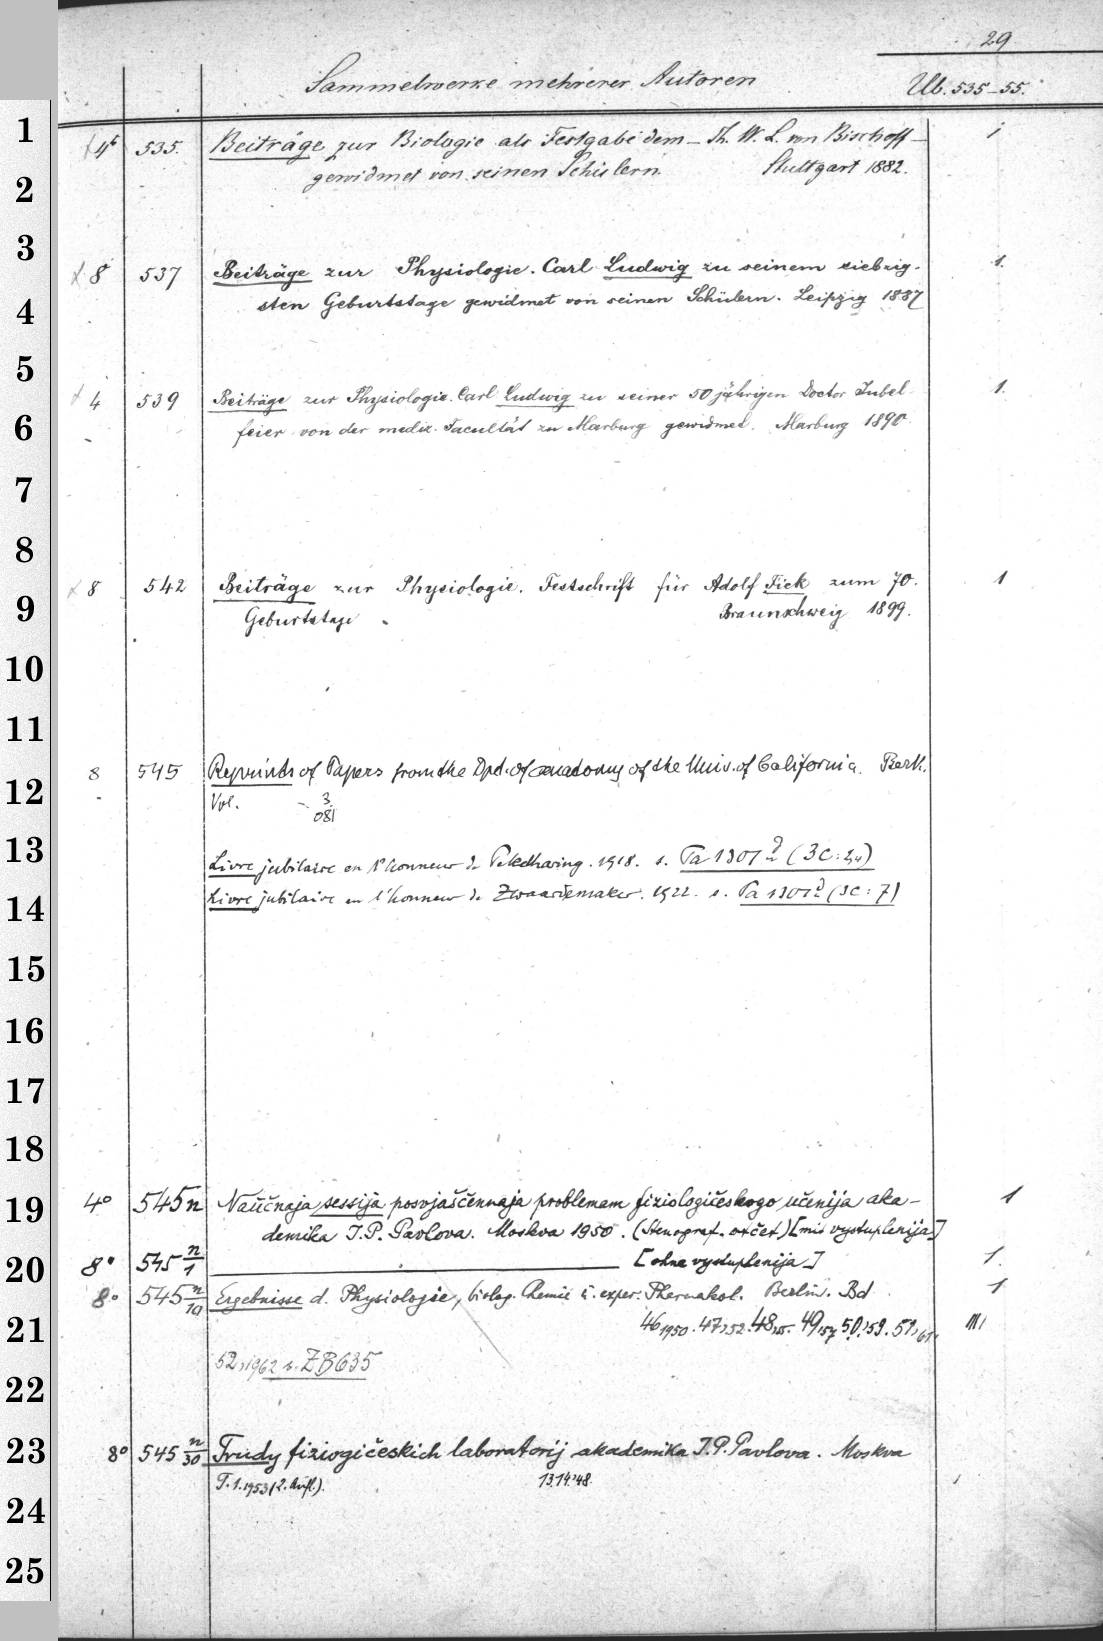 29
Sammelwerke mehrerer Autoren Ub. 535-55.
1
4° 535. Beiträge zur Biologie als Festgabe dem - Th. W. L. von Bischoff - 1
gewidmet von seinen Schülern. Stuttgart 1882.
2
3
8 537 Beiträge zur Physiologie. Carl Ludwig zu seinem siebzig- 1.
4
sten Geburtstage gewidmet von seinen Schülern. Leipzig 1887
5
4 539 Beiträge zur Physiologie. Carl Ludwig zu seiner 50 jährigen Doctor Jubel- 1.
6
feier von der mediz. Facultät zu Marburg gewidmet. Marburg 1890.
7
8
8 542 Beiträge zur Physiologie. Festschrift für Adolf Fick zum 70. 1
9
Geburtstage Braunschweig 1899.
10
11
8 545 Reprints of Papers from the Dpt. of anatomy of the Univ. of California. Berk.
12
Vol. 3
081
13
Livre jubilaire en l'honneur de Pekelharing. 1918. s. Ta 1301 (3C: 2,4)
14
Livre jubilaire en l'honneur de Zwaardemaker. 1922. s. Ta 1301 (3C: 7)
15
16
17
18
19
4° 545n Naučnaja sessija posvjaščennaja problemam fiziologičeskogo učenija aka- 1
demika I. P. Pavlova. Moskva 1950. (Stenograf. otčet) [mit vystuplenija]
20
8° 545 n/1 [ohne vystuplenija] 1.
8° 545 n/10 Ergebnisse d. Physiologie, biolog. Chemie u. exper. Pharmakol. Berlin. Bd 1
21
46,1950. 47,52. 48,55. 49,57. 50,59. 51,61. III
52,1962 s. ZB635
22
23
8° 545 n/30 Trudy fiziogičeskich laboratorij akademika I. P. Pavlova. Moskva
T. 1. 1953 (2. Aufl.). 13.14.'48.
24
25